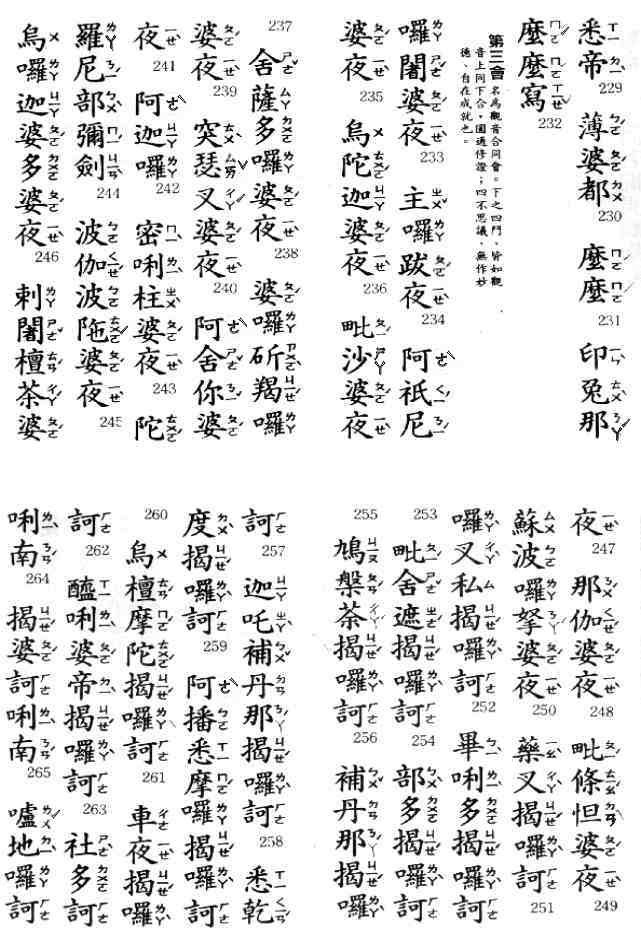 悉帝229 薄婆都230 麼麼231 印兔那
麼麼寫232
第三會 名為觀音合同會。下之四門、皆如觀
音上同下合，圓通修證；四不思議、無作妙
德、自在成就也。
囉闍婆夜233 主囉跋夜234 阿祇尼
婆夜235 烏陀迦婆夜236 毗沙婆夜
237 舍薩多囉婆夜238 婆囉斫羯囉
婆夜239 突瑟叉婆夜240 阿舍你婆
夜241 阿迦囉242 密唎柱婆夜243 陀
羅尼部彌劍244 波伽波陁婆夜245
烏囉迦婆多婆夜246 剌闍檀茶婆
夜247 那伽婆夜248 毗條怛婆夜249
蘇波囉拏婆夜250 藥叉揭囉訶251
囉叉私揭囉訶252 畢唎多揭囉訶
253 毗舍遮揭囉訶254 部多揭囉訶
255 鳩槃茶揭囉訶256 補丹那揭囉
訶257 迦吒補丹那揭囉訶258 悉乾
度揭囉訶259 阿播悉摩囉揭囉訶
260 烏檀摩陀揭囉訶261 車夜揭囉
訶262 醯唎婆帝揭囉訶263 社多訶
唎南264 揭婆訶唎南265 嚧地囉訶